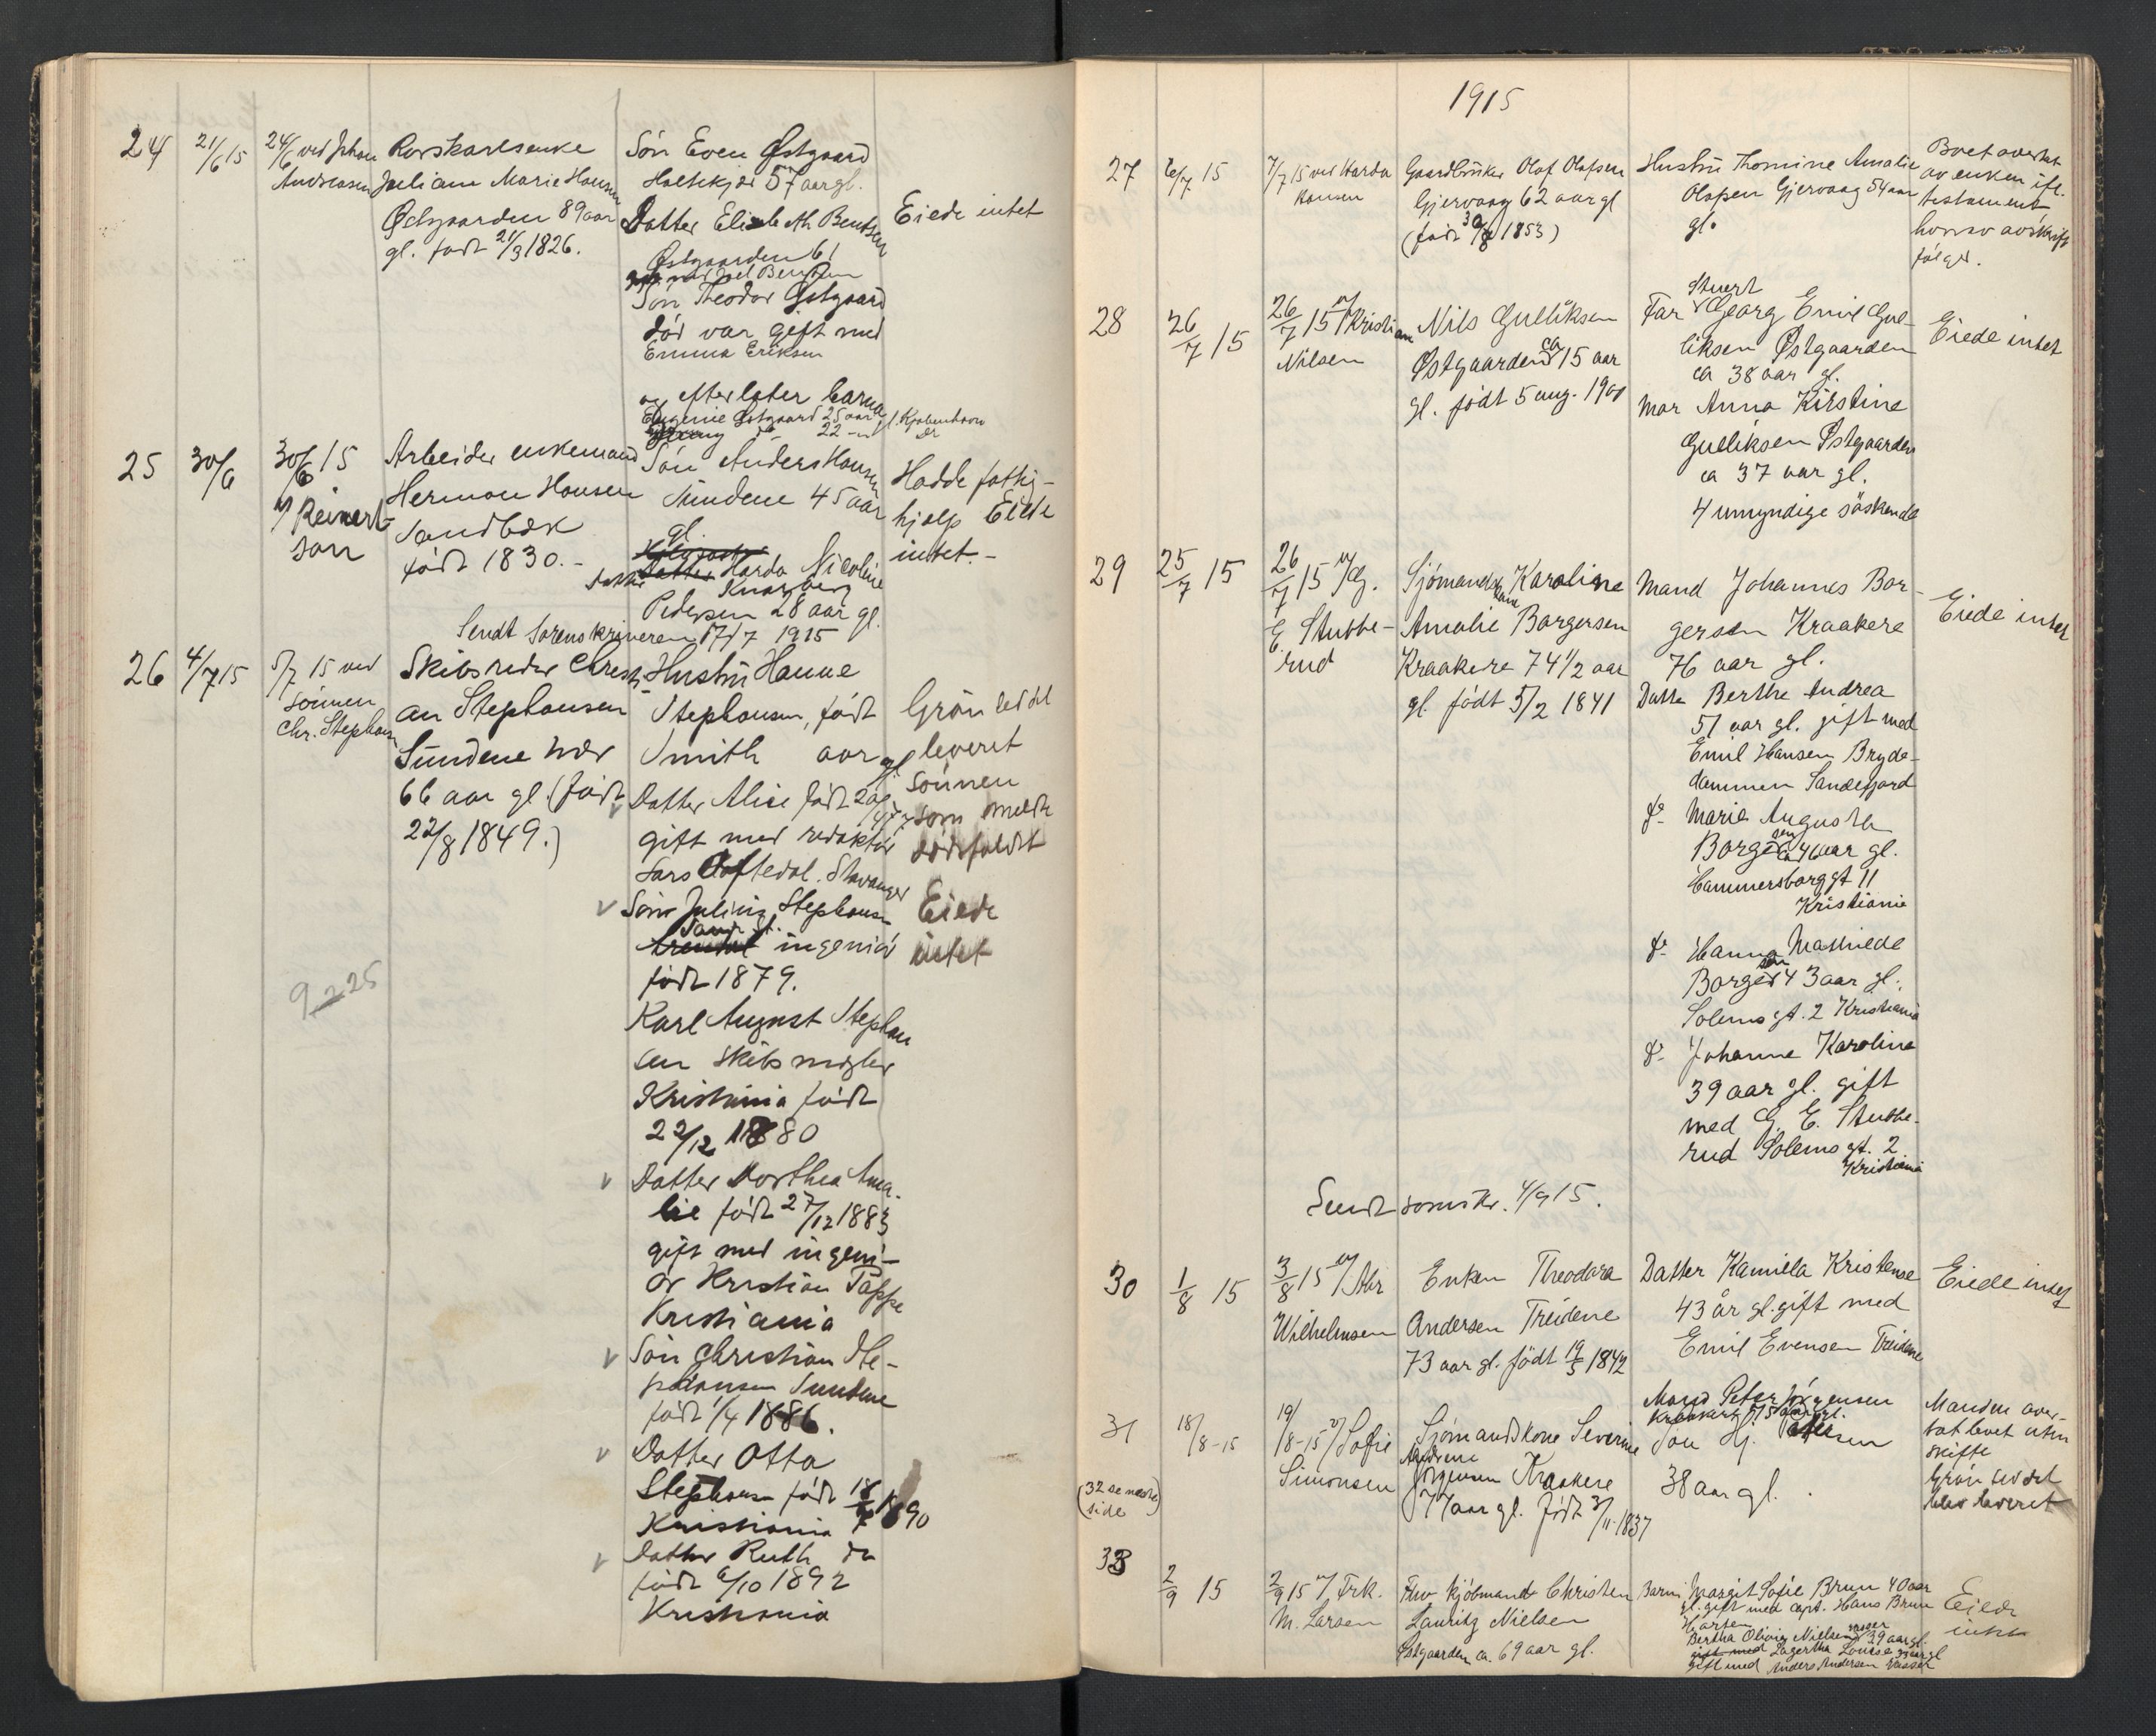 24
21/6 15
24/6 ved Johan
Andreasen
Juliane Marie Hansen
Østgaarden 89 aar
gl. født 21/3 1826.
Søn Even Østgaard
57 aar gl.
Datter Elisabeth Bentsen
Østgaarden 61
Søn Theodor Østgaard
død var gift med
Emma Eriksen
og efterlater barna
Eugenie Østgaard 25 aar gl. Kjøbenhavn
do 22 - " do
Eiede intet
25
30/6
30/6 15
v/ Reinert-
sen
Arbeider enkemand
Herman Hansen
Sandbæk
født 1830. -
Søn Anders Hansen
Sundene 45 aar
gl.
Datter Harda Nicoline
Knarberg
Pedersen 28 aar gl.
Hadde fattig-
hjælp Eiede
intet. -
Sendt Sorenskriveren 17/7 1915
26
4/7 15
5/7 15 ved
sønnen
Chr. Stephansen
Skibsreder Christi-
an Stephansen
Sundene
66 aar gl. (født
22/8 1849.)
Hustru Hanne
Stephansen, født
Smith aar gl
Datter Alice født
gift med redaktør
Lars Oftedal. Stavanger
Søn Julius Stephansen
ingeniør
født 1879.
Karl August Stephan
sen Skibsmægler
Kristiania født
22/12 1880
Datter Dorthea Ama-
lie født 27/12 1883
gift med ingeni-
ør Kristian Tappe
Kristiania
Søn Christian Ste-
phansen Sundene
født 1/4 1886.
Datter Otta
Stephansen født 18/7 1890
Kristiania
Datter Ruth do
født 6/10 1892
Kristiania
Grøn seddel
leveret
sønnen
som meldte
dødsfaldet
Eiede
intet
9225
1915
27
6/7 15
7/7 15 ved Harda
Hansen
Gaardbruker Olaf Olafsen
Gjervaag 62 aar gl
(født 30/8 1853)
Hustru Thomine Amalie
Olafsen Gjervaag 54 aar
gl.
Boet overtat
av enken ifl.
testament
hvorav avskrift
følger.
28
26/7 15
26/7 15 v/ Kristian
Nilsen
Nils Gulliksen
Østgaarden ca 15 aar
gl. født 5 aug. 1900
Stuert
Far Georg Emil Gul-
liksen Østgaarden
ca 38 aar gl.
Mor Anna Kirstine
Gulliksen Østgaarden
ca 37 aar gl.
4 umyndige søskende
Eiede intet
29
25/7 15
26/7 15 v/ G.
E. Stubbe-
rud
Sjømandskone Karoline
Amalie Borgersen
Kraakere 74 1/2 aar
gl. født 5/2 1841
Mand Johannes Bor-
gersen Kraakere
76 aar gl.
Datter Berthe Andrea
51 aar gl. gift med
Emil Hansen Bryde-
dammen Sandefjord
do Marie Augusta
Borgersen ca 46 aar gl.
Hammersborggt 11
Kristiania
do Hanna Mathilde
Borgersen 43 aar gl.
Solemsgt. 2 Kristiania
do Johanne Karoline
39 aar gl. gift
med G. E. Stubbe-
rud Solemsgt. 2
Kristiania
Eiede intet
Sendt sorenskr. 4/9 15.
30
1/8 15
3/8 15 v/ Abr
Wilhelmsen
Enken Theodora
Andersen Treidene
73 aar gl. født 19/5 1842
Datter Kamilla Kristense
43 år gl. gift med
Emil Evensen Treidene
Eiede intet
31
18/8-15
19/8-15 v/ Sofie
Simonsen
Sjømandskone Severine
Andrine
Jørgensen Kraakere
77 aar gl. født 3/11-1837
Mand Peter Jørgensen
Kraakere 75 aar gl.
Søn Hj.
38 aar gl.
Manden over-
tat boet uten
skifte
Grøn seddel
blev leveret
(32 se neste
side
33
2/9 15
2/9 15 v/ Frk.
M. Larsen
Fhv kjøbmand Christen
Lauritz Nielsen
Østgaarden ca. 69 aar gl.
Barn: Margit Sofie Brun 40 aar
gl. gift med Capt. Hans Brun
Horten
Bertha Olivia Nielsen 39 aar gl.
gift med Lagertha Louise
gift med Anders Andersen Vasser
Eiede
intet